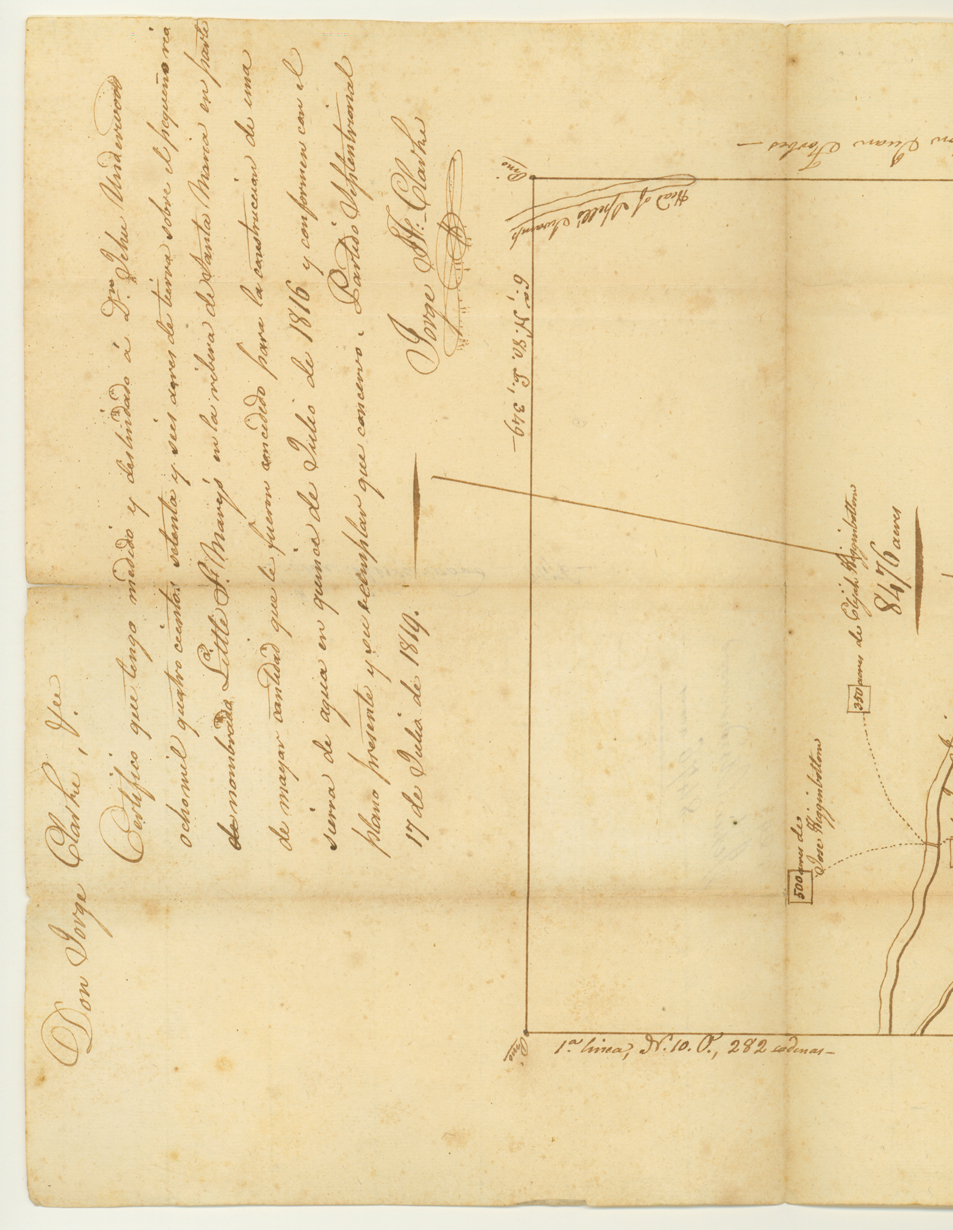 Don Jorge Clarke, &ce
Certifico que tengo medido y deslindado á Dn. Jehu Underwood
ocho mil quatro cientos setenta y seis acres de tierra sobre el pequeño rio
de nombrada Little St. Marys en la ribera de Santa Maria en parte
de mayor cantidad que le fueron concedido para la construccion de una
sierra de agua en quince de Julio de 1816 y conformen con el
plano presente y su exemplar que conservo. Partido Septentrional
17 de Julio de 1819.
Jorge J. F. Clarke
Juan Forbes —
Pine
Head of Spell's Swamp
N. 80. E., 349—
350 acres de Elijah Higginbottom
8476 acres
500 acres de
Jose Higginbottom
Pine
1a. linea, N. 10. O., 282 cadenas—